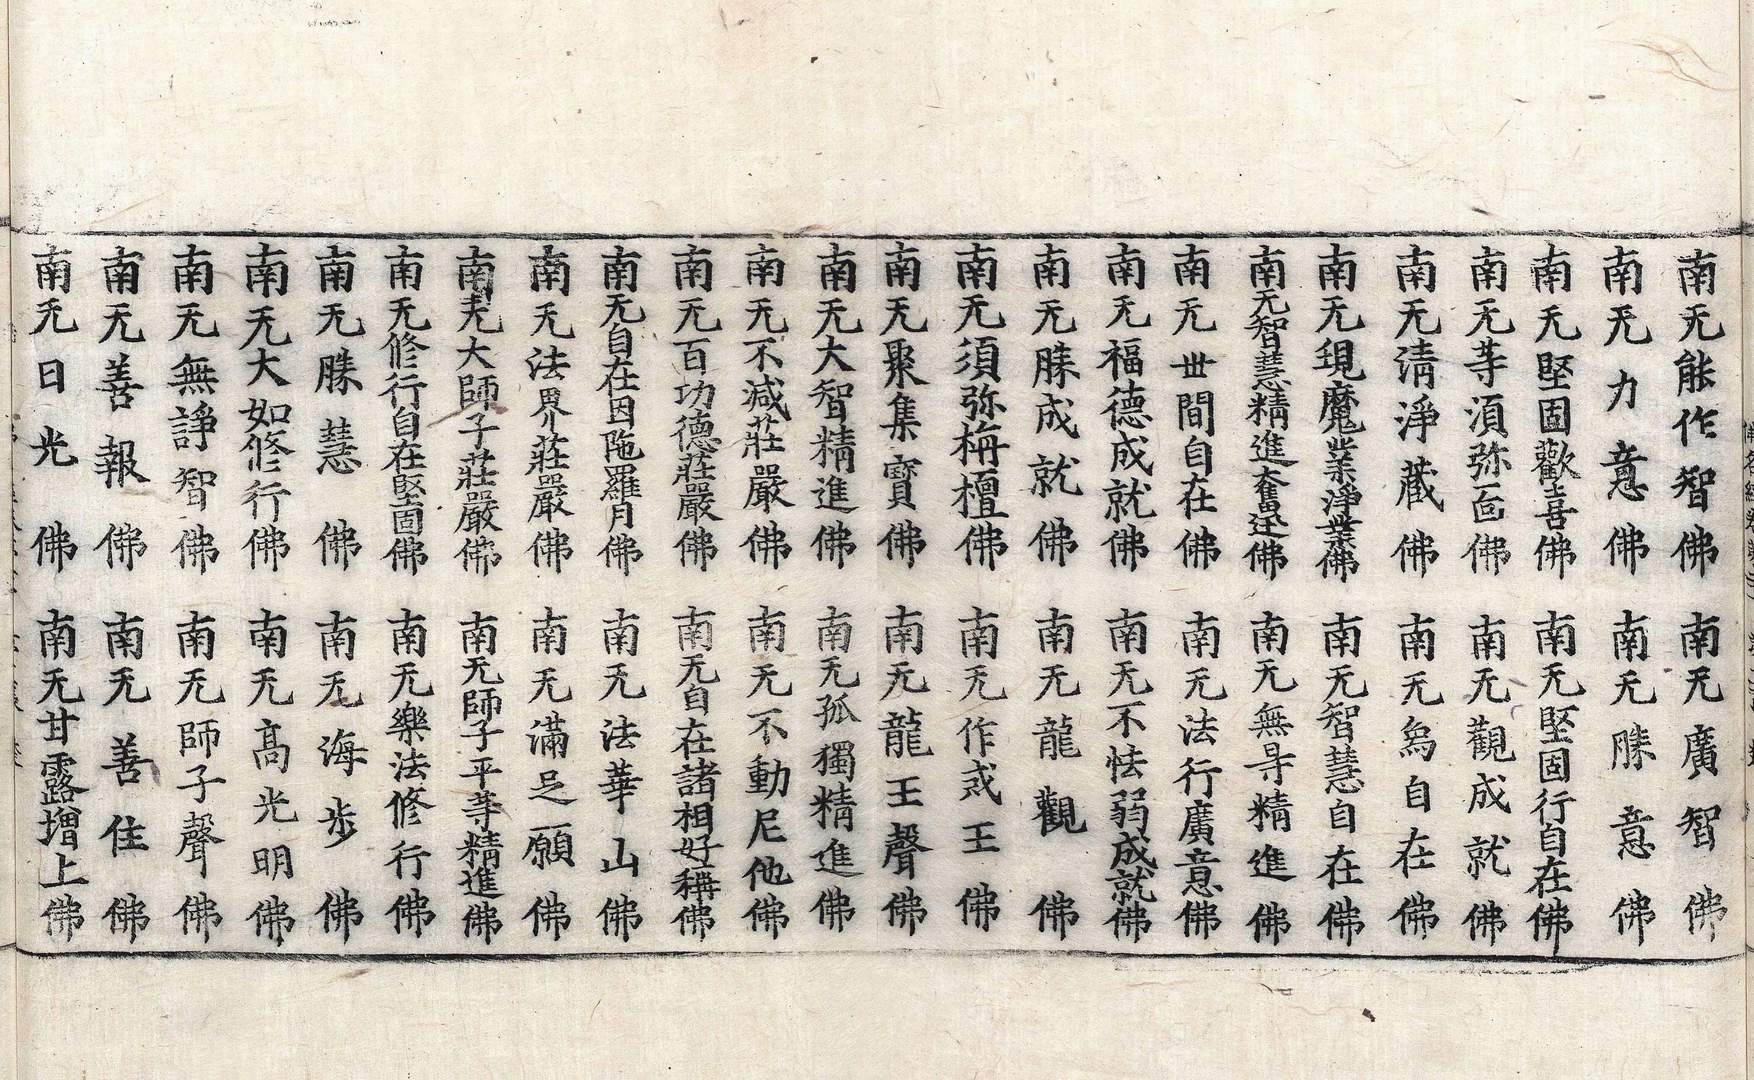 南无能作智佛 南无廣智佛
南无力意佛 南无勝意佛
南无堅固歡喜佛 南无堅固行自在佛
南无等湏弥靣佛 南无觀成就佛
南无清淨藏佛 南无為自在佛
南无現魔業淨業佛 南无智慧自在佛
南无智慧精進奮迅佛 南无無㝵精進佛
南无世間自在佛 南无法行廣意佛
南无福德成就佛 南无不怯弱成就佛
南无勝成就佛 南无龍觀佛
南无須弥栴檀佛 南无作戒王佛
南无聚集寳佛 南无龍王聲佛
南无大智精進佛 南无孤獨精進佛
南无不減莊嚴佛 南无不動尼他佛
南无百功德莊嚴佛 南无自在諸相好稱佛
南无自在因陁羅月佛 南无法華山佛
南无法界莊嚴佛 南无滿足願佛
南无大師子莊嚴佛 南无師子平等精進佛
南无修行自在堅固佛 南无樂法修行佛
南无勝慧佛 南无海步佛
南无大如修行佛 南无高光明佛
南无無諍智佛 南无師子聲佛
南无善報佛 南无善住佛
南无日光佛 南无甘露增上佛